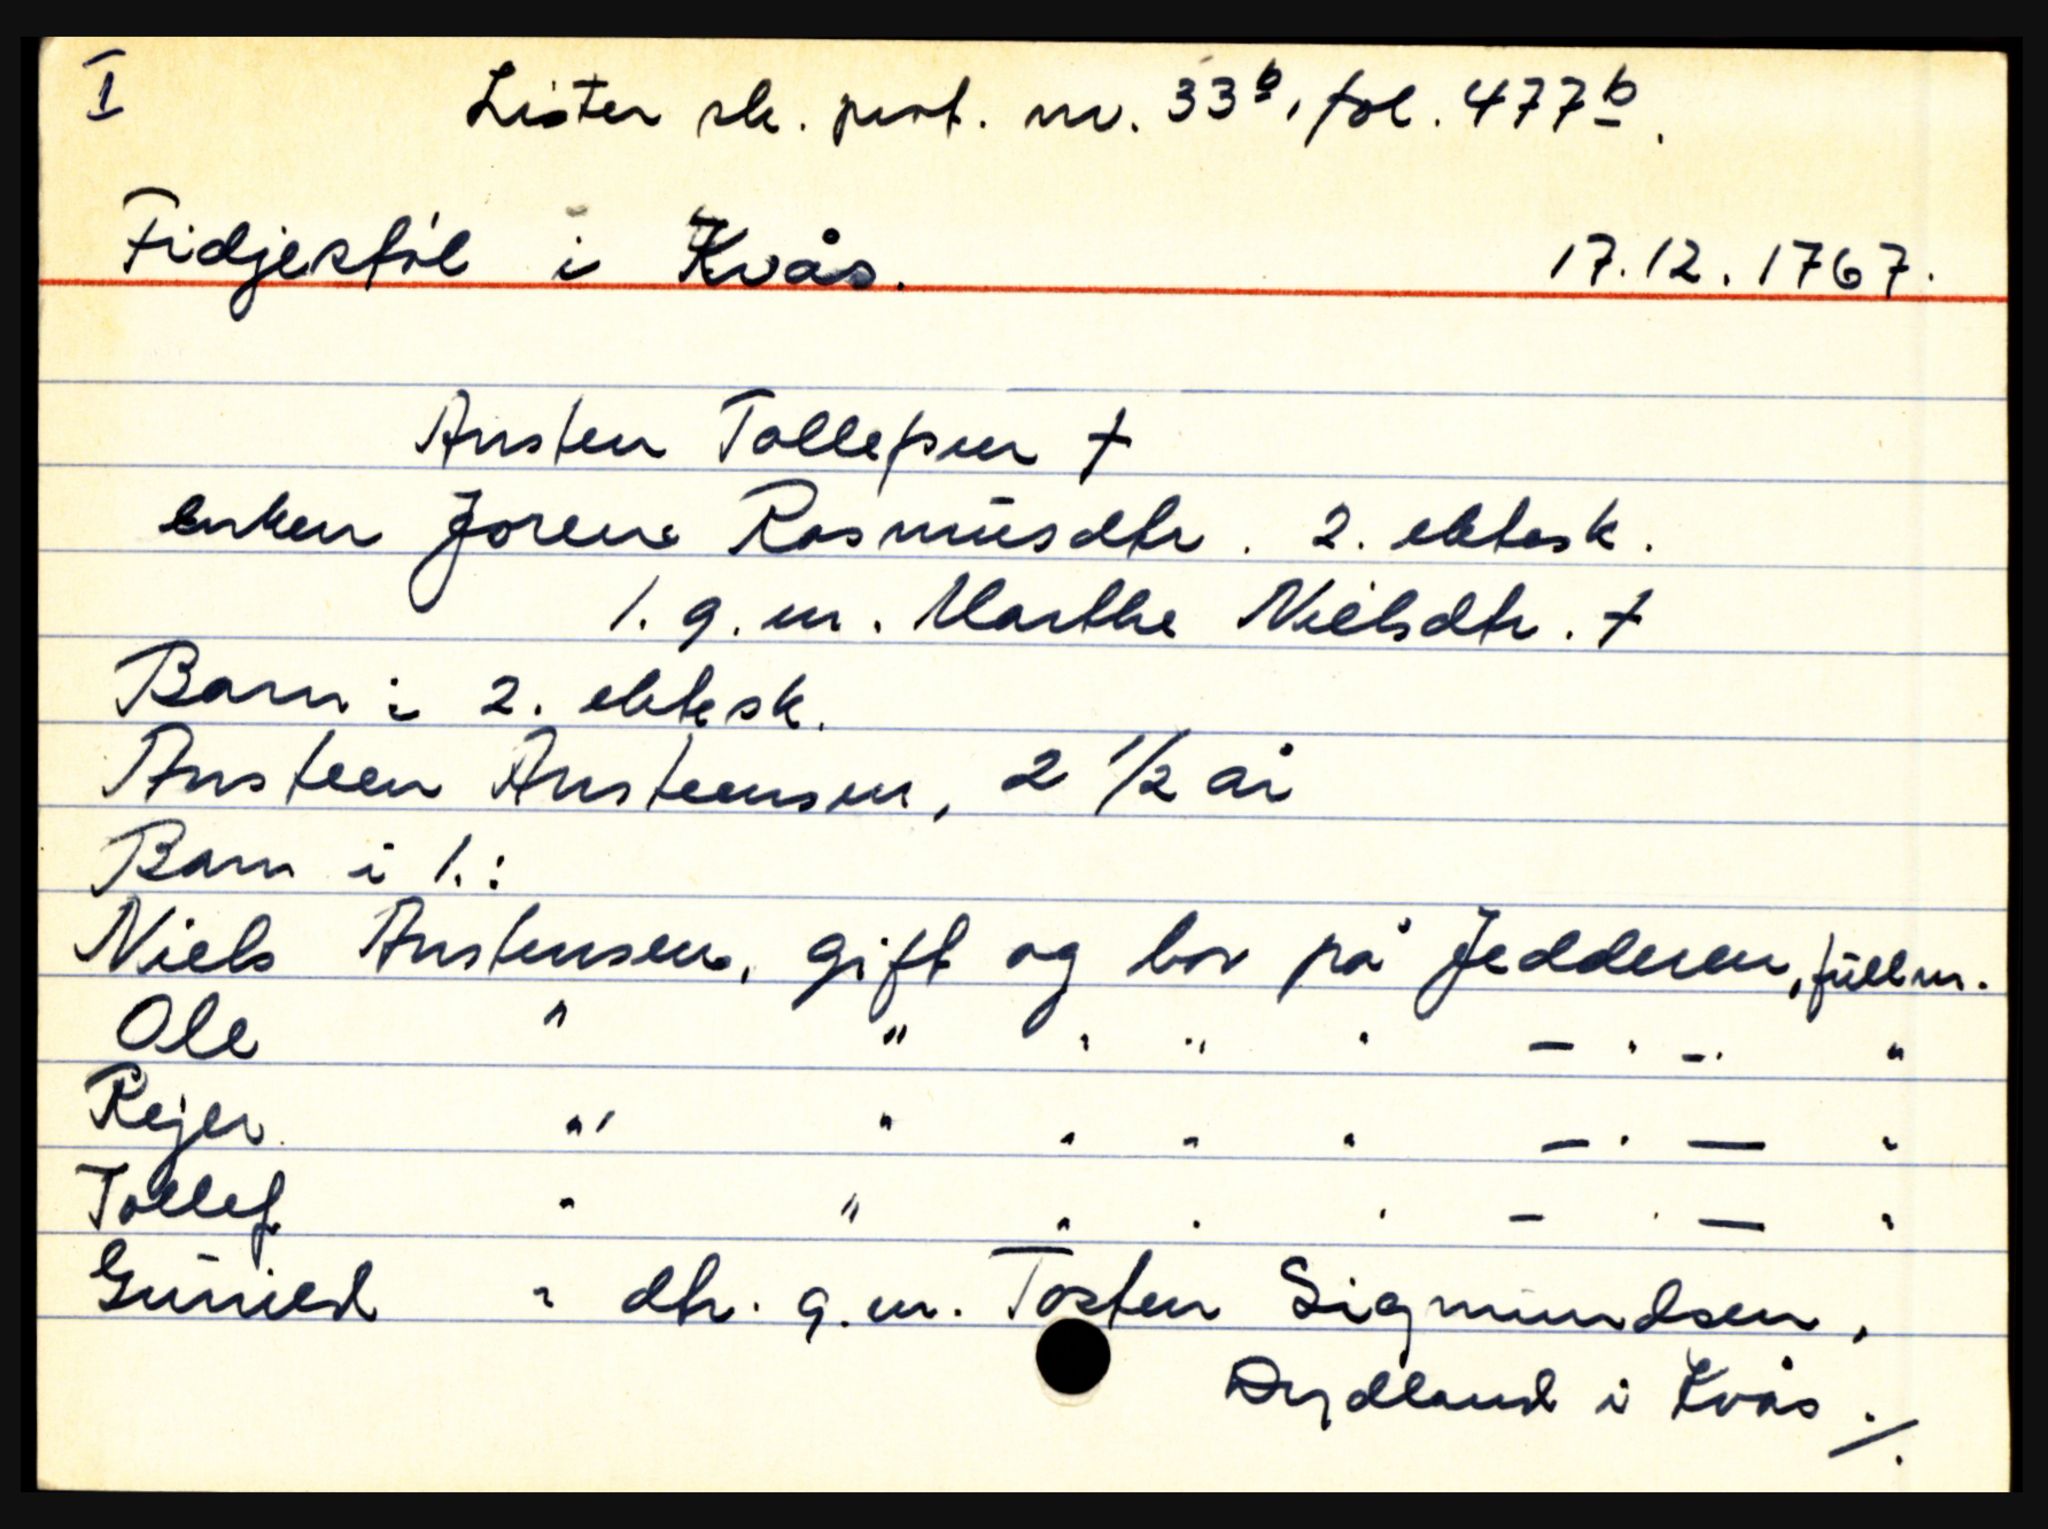 I
Lister sk. prot. nr. 33b, fol. 477b.
Fidjestøl i Kvås. 17.12.1767.
Austen Tollefsen †
enken Jorene Rasmusdtr. 2. ektesk.
1. g.m. Marthe Nielsdtr. †
Barn i 2. ektesk.
Austeen Austeensen, 2 1/2 år
Barn i 1.:
Niels Austensen, gift og bor på Jedderen, fullm.
Ole " " " " " — " — "
Rejer " " " " " — " — "
Tollef " " " " " — " — "
Gunild " dtr. g.m. Tosten Sigmundsen,
Rydland i Kvås ./.